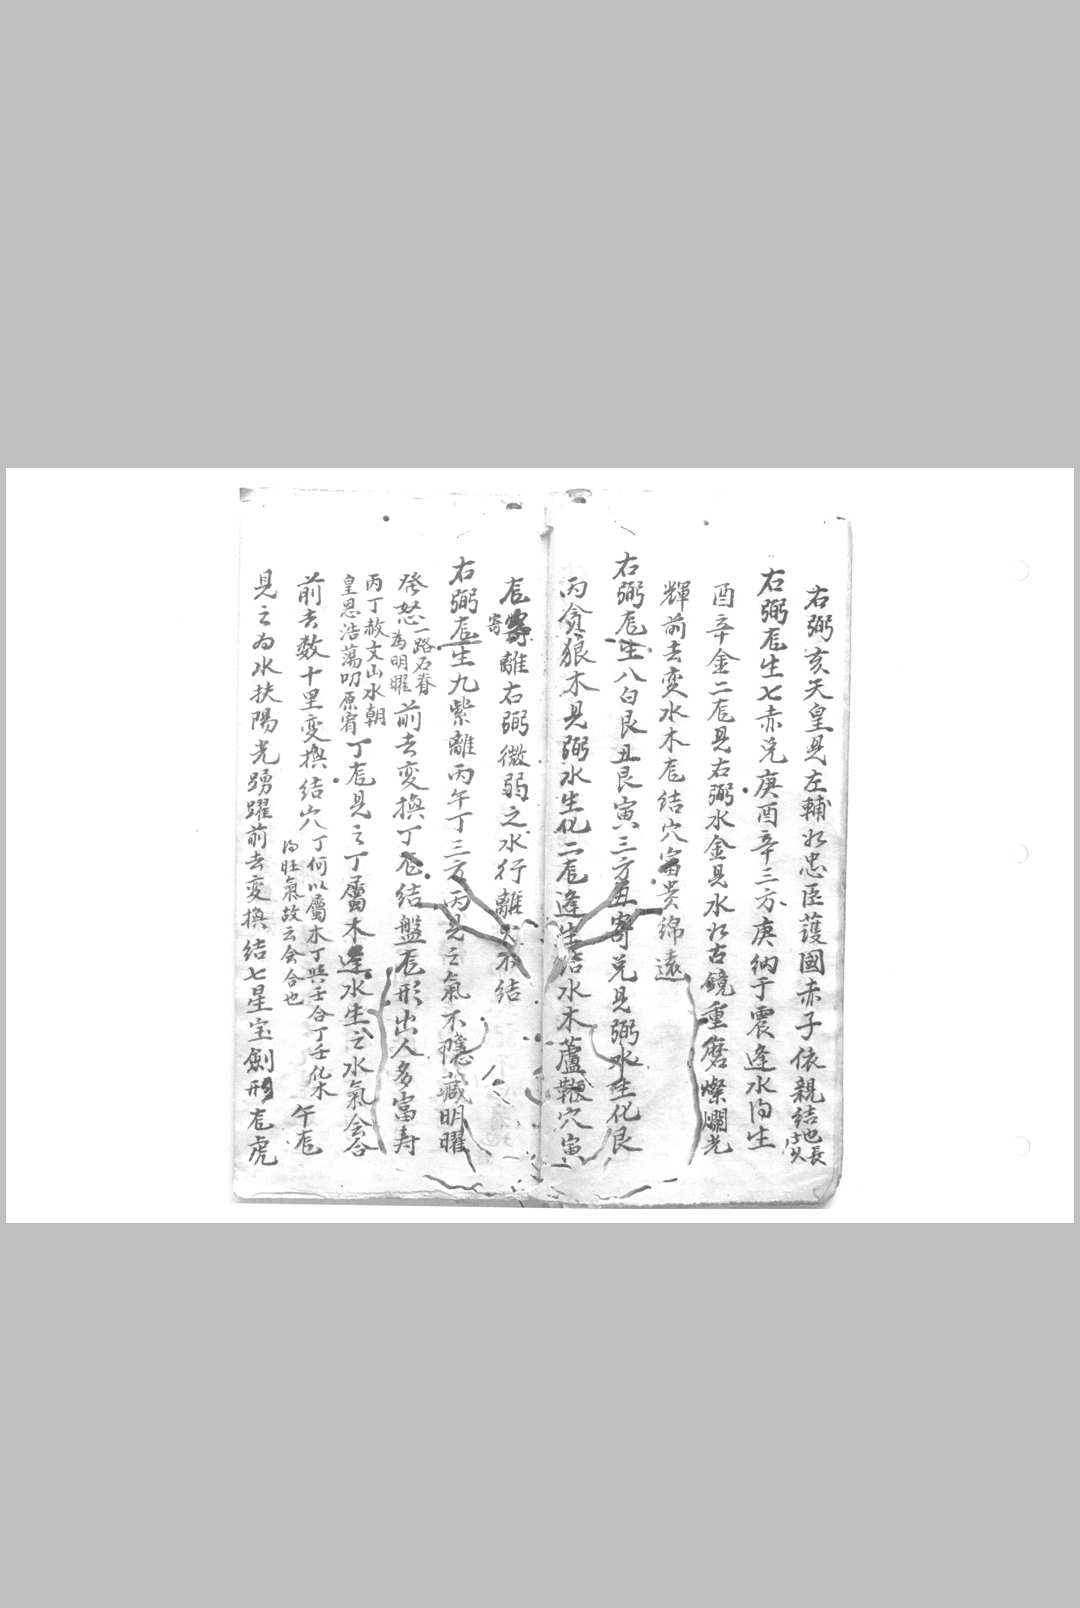 右弼亥天皇見左輔水忠臣護國赤子依親結也長
右弼龙生七赤兌庚酉辛三方庚納于震逢水內生
酉辛金二龙見右弼水金見水水古鏡重磨燦爛光
輝前去変水木龙結穴富贵綿遠
右弼龙生八白艮丑艮寅三方丑寄兌見弼水生化艮
丙貪狼木見弼水生化二龙逢生結水木蘆鞭穴寅
龙寄離右弼微弱之水行離不結
寄
右弼龙生九紫離丙午丁三方丙見之氣不隱藏明曜
發怒一路石脊
為明曜前去変換丁龙結盤龙形出人多富寿
丙丁赦文山水朝
皇恩浩蕩叨原宥丁龙見之丁屬木逢水生之水氣会合
前去数十里変換結穴丁何以屬木丁與壬合丁壬化木
內旺氣故云会合也午龙
見之為水扶陽光踴躍前去変換結七星宝劍形龙虎